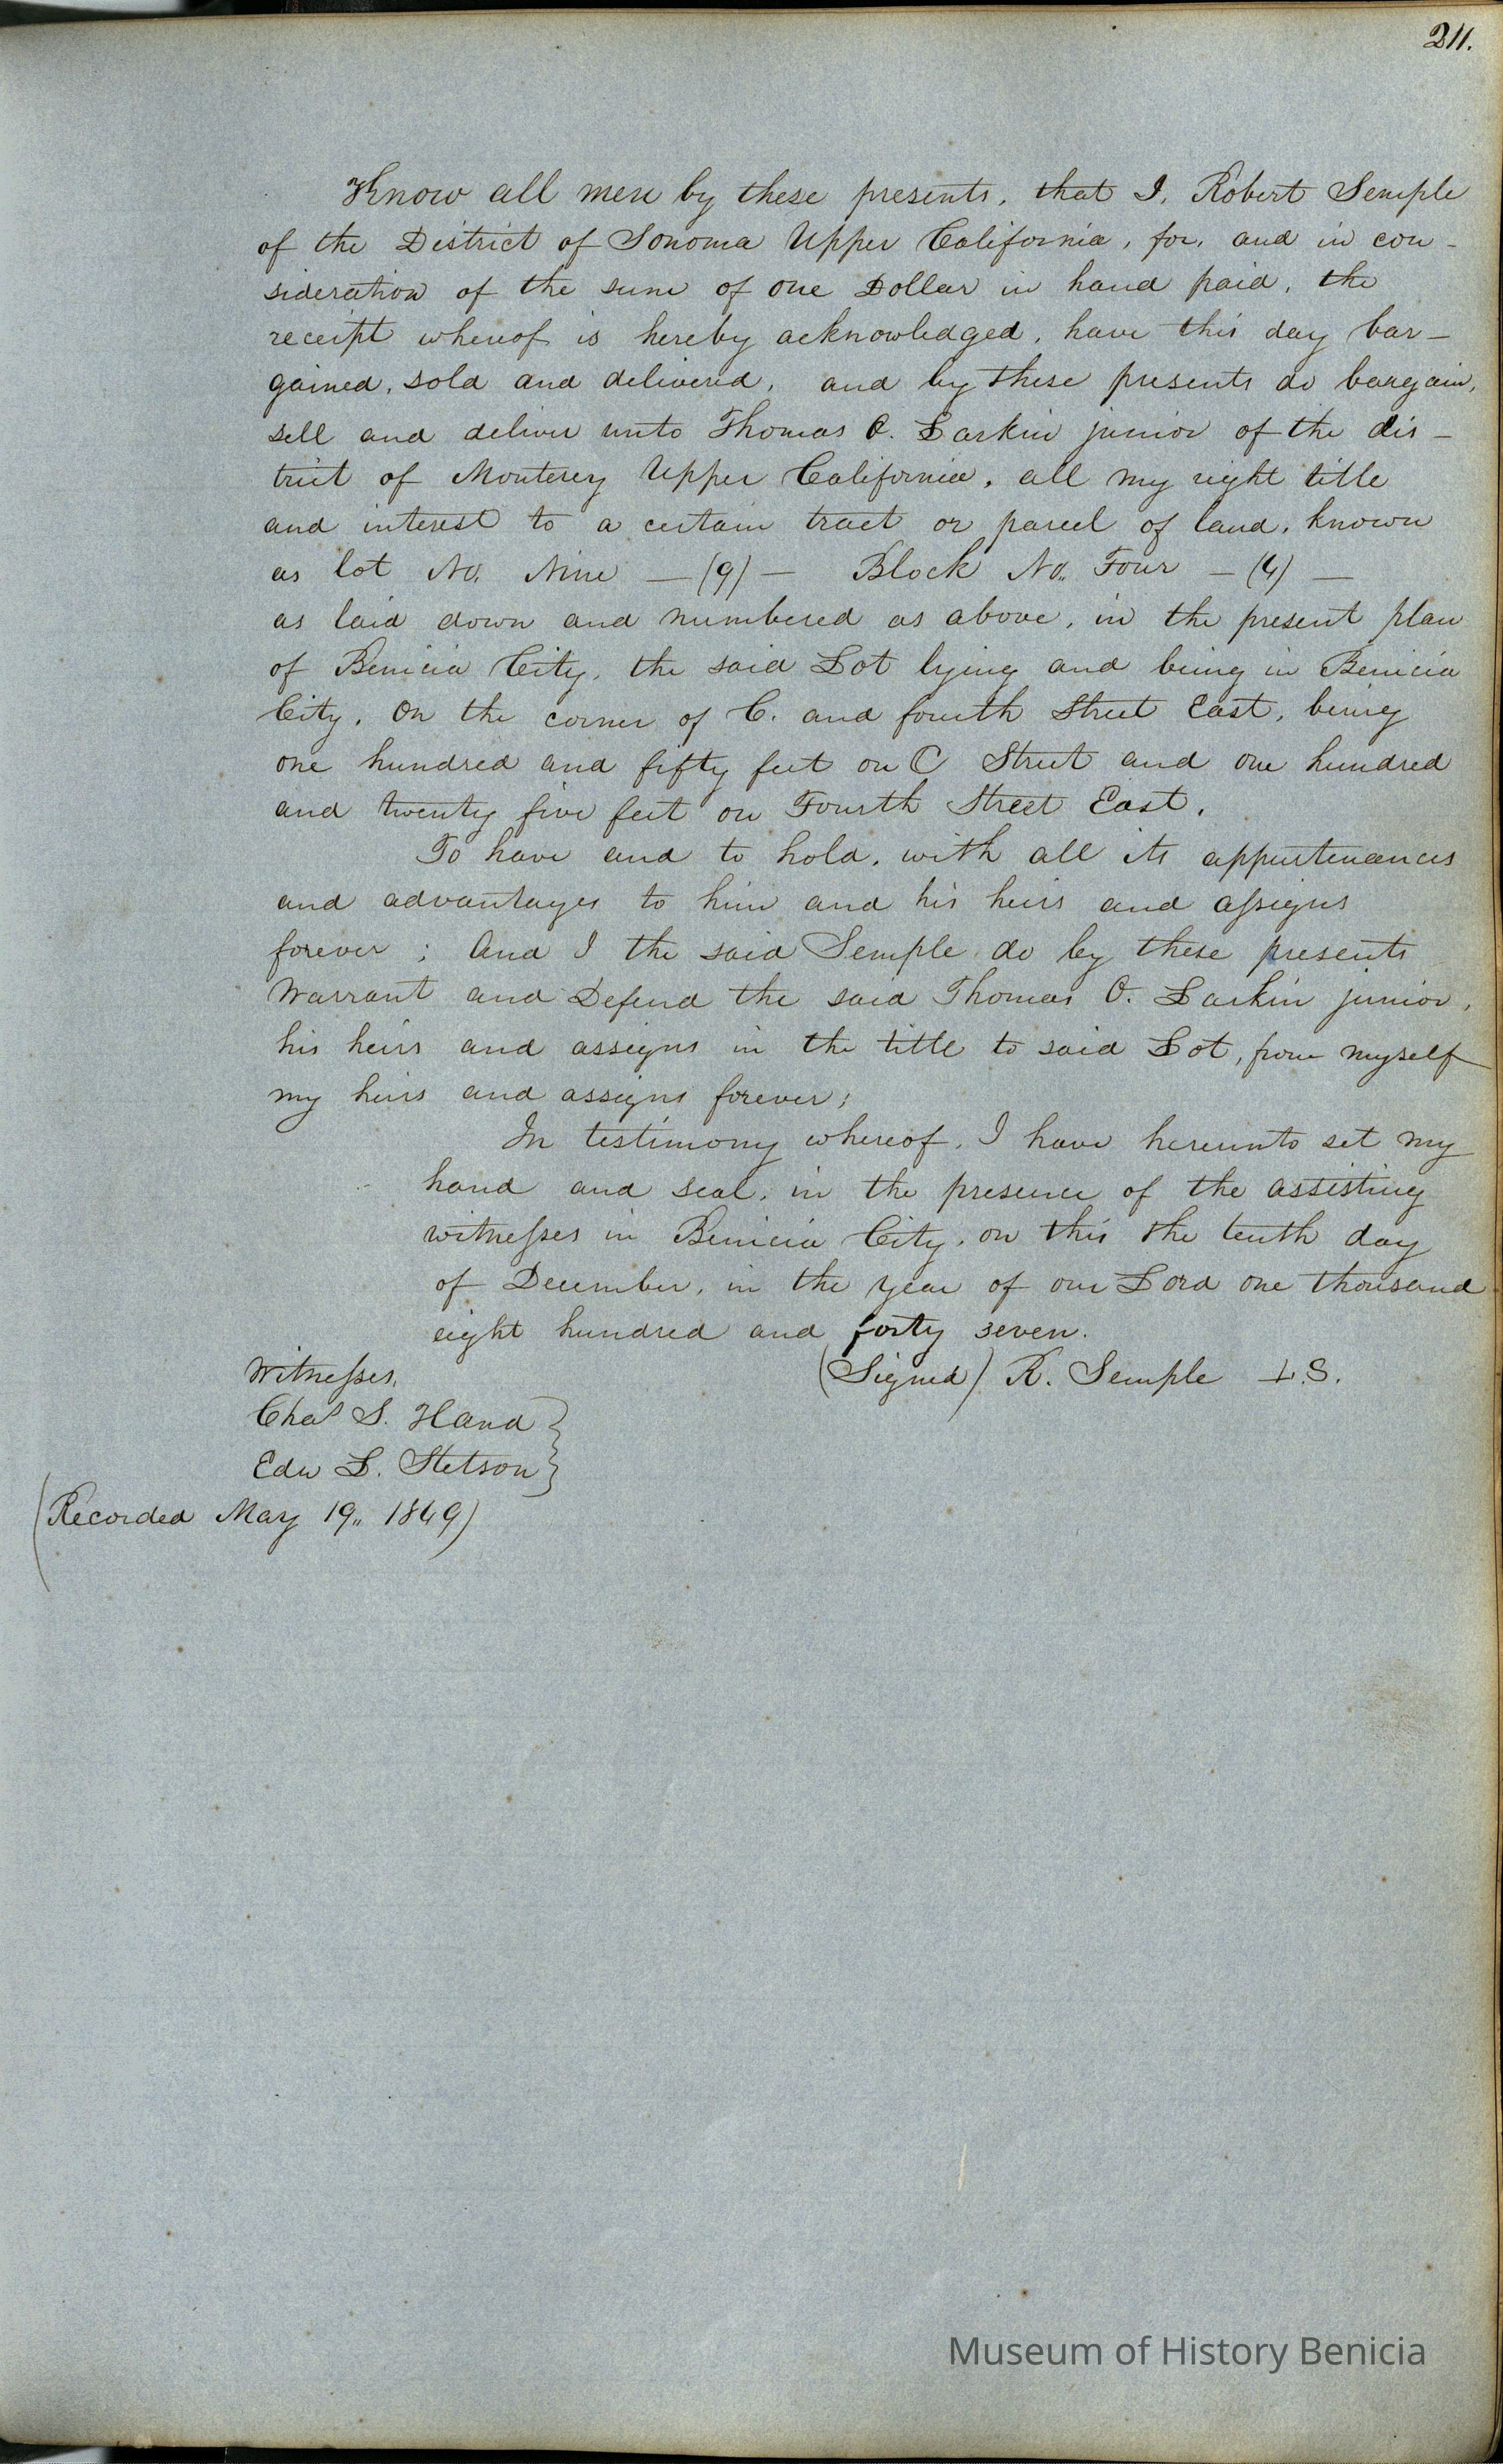 211.
Know all men by these presents, that I, Robert Semple
of the District of Sonoma Upper California, for, and in con-
sideration of the sum of one Dollar in hand paid, the
receipt whereof is hereby acknowledged, have this day bar-
gained, sold and delivered, and by these presents do bargain,
sell and deliver unto Thomas O. Larkin junior of the dis-
trict of Monterey Upper California, all my right title
and interest to a certain tract or parcel of land, known
as lot No. Nine — (9) — Block No. Four — (4) —
as laid down and numbered as above, in the present plan
of Benicia City, the said Lot lying and being in Benicia
City, On the corner of C. and fourth Street East, being
one hundred and fifty feet on C Street and one hundred
and twenty five feet on Fourth Street East.
To have and to hold, with all its appurtenances
and advantages to him and his heirs and assigns
forever ; And I the said Semple do by these presents
Warrant and Defend the said Thomas O. Larkin junior,
his heirs and assigns in the title to said Lot, from myself
my heirs and assigns forever;
In testimony whereof, I have hereunto set my
hand and seal, in the presence of the assisting
witnesses in Benicia City, on this the tenth day
of December, in the year of our Lord one thousand
eight hundred and forty seven.
Witnesses, (Signed) R. Semple L.S.
Chas S. Hand }
Edw L. Stetson }
(Recorded May 19,, 1849)
Museum of History Benicia